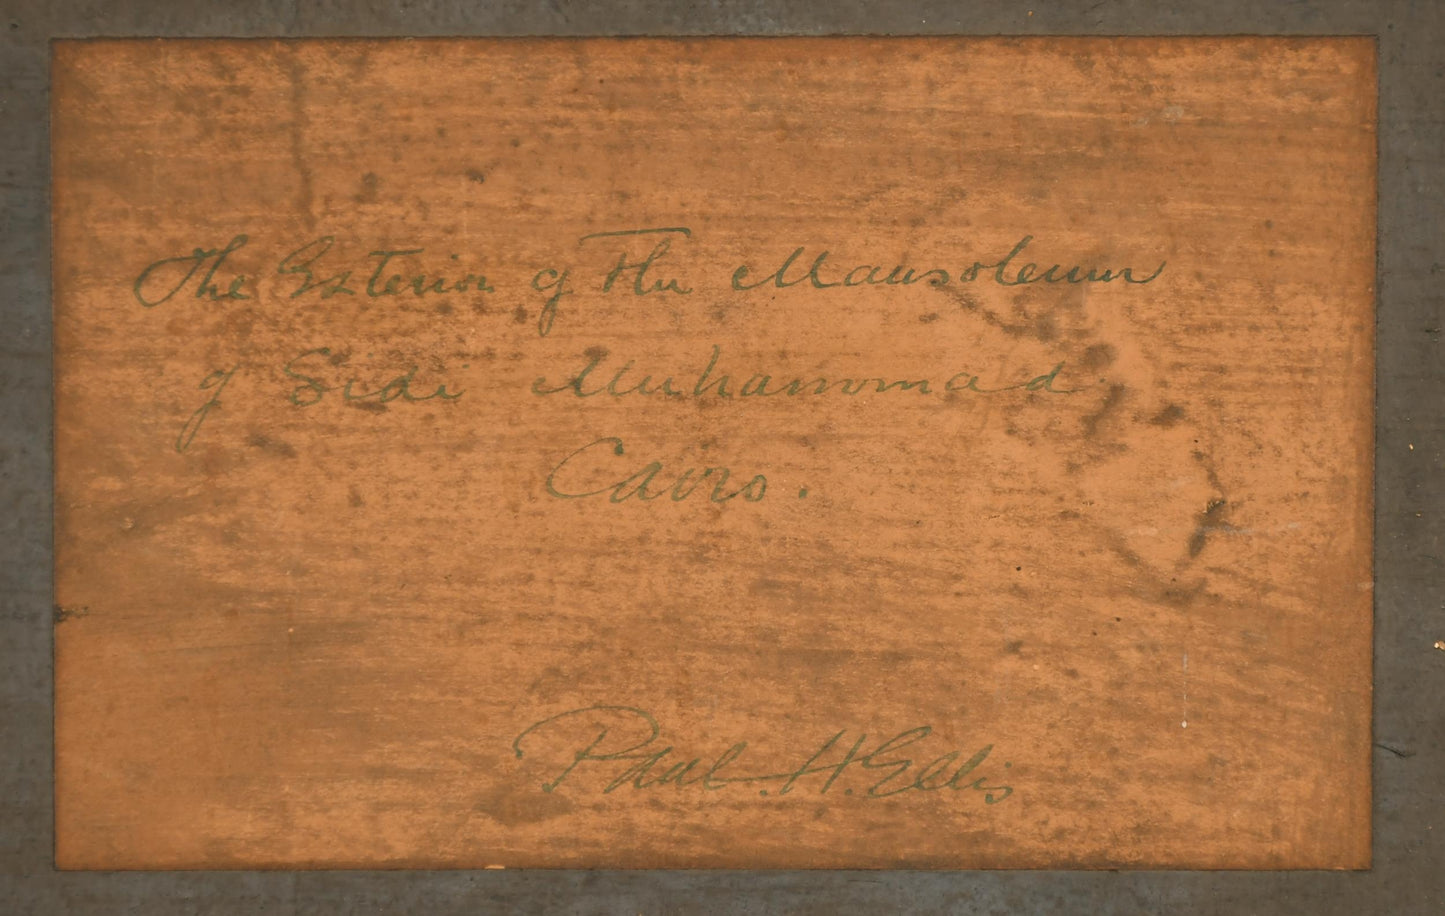 The Exterior of The Mausoleum
of Sidi Muhammad.
Cairo.
Paul. H. Ellis